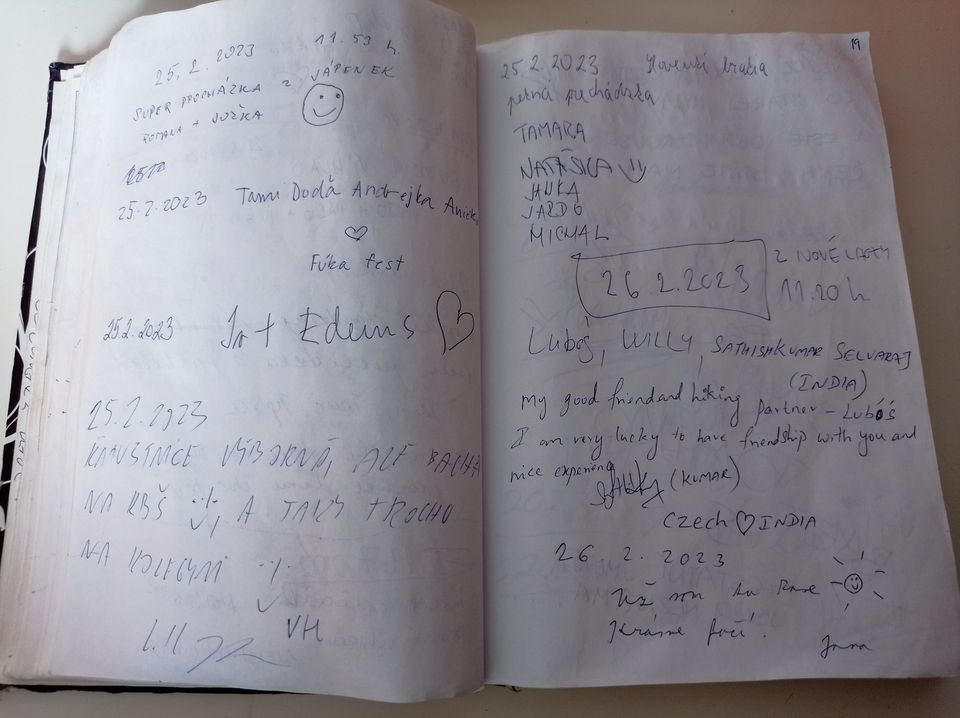 25.2.2023 11.53 h.
SUPER PROCHÁZKA Z VÁPENEK
ROMANA + JUŘKA
25.2.2023 Tami Dodă Andrejka
Fúka fest
25.2.2023 Jo + Edems
25.2.2023
KAPUSTNICE VÝBORNÁ, ALE BACHA
NA KBŠ A TAKY TROCHU
NA KOLEGYNI
VH
19
25.2.2023 Slovenskí bratia
pekná prechádzka
TAMARA
NATÁŠKA
MICHAL
26.2.2023 Z NOVÉ LHOTY
11.20 h
Luboš, WILLY, SATHISHKUMAR SELVARAJ
(INDIA)
my good friend and hiking partner - Luboš
I am very lucky to have friendship with you and
nice experieng
(KUMAR)
Czech ♡ INDIA
26. 2. 2023
Už som tu zase
Krásne fučí.